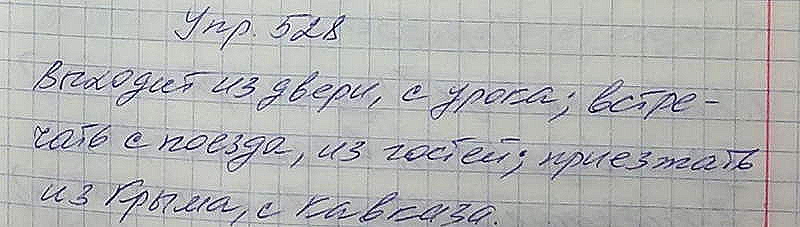 Упр. 528
выходит из двери, с урока; встре-
чать с поезда, из гостей; приезжать
из Крыма, с Кавказа.